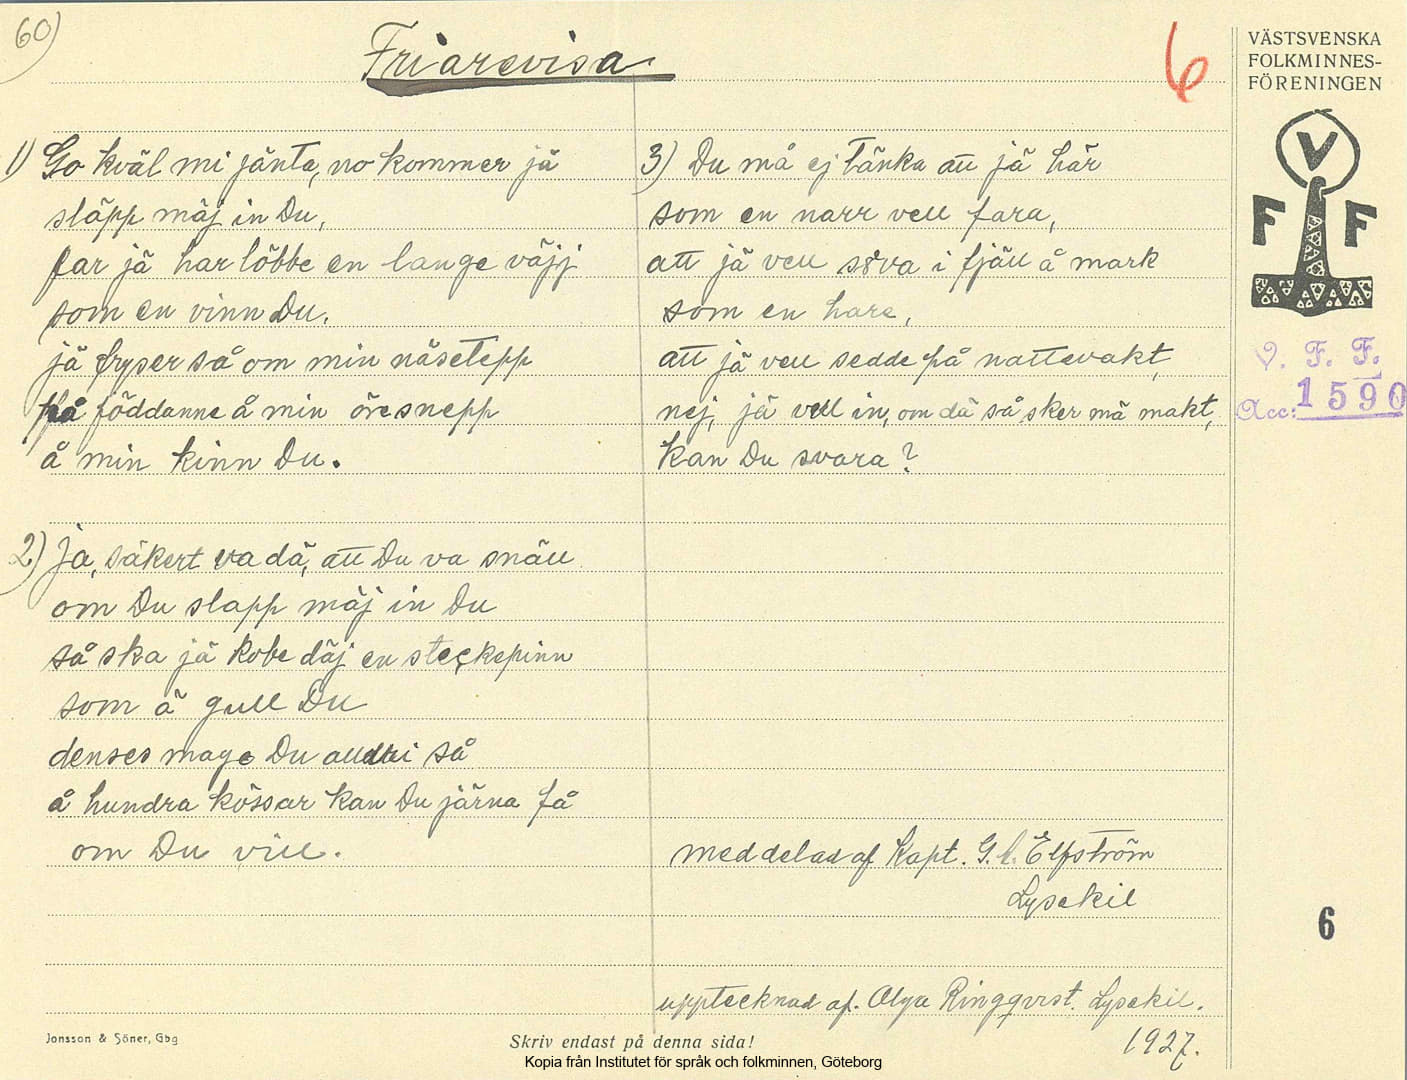 60)
Friarevisa
6
VÄSTSVENSKA
FOLKMINNES-
FÖRENINGEN
V
F F
V. F. F.
Acc: 1590
1) Go kväl mi jänta, no kommer jä
släpp mäj in Du,
far jä har löbbe en lange väjj
som en vinn Du.
jä fryser så om min näsetepp
på föddanne å min öresnepp
å min kinn Du.
2) Ja, säkert va dä, att Du va snäll
om Du slapp mäj in Du
så ska jä kobe däj en steckepinn
som ä gull Du
denses mage Du alldri så
å hundra kössar kan Du järna få
om Du vill.
3) Du må ej tänka att jä här
som en narr vell fara,
att jä vell söva i fjäll å mark
som en hare,
att jä vell sedde på nattevakt,
nej, jä vell in, om dä så sker mä makt,
kan Du svara?
meddelad af Kapt. G. Elfström
Lysekil
6
upptecknad af. Olga Ringqvist. Lysekil.
1927.
Jonsson & Söner, Gbg
Skriv endast på denna sida!
Kopia från Institutet för språk och folkminnen, Göteborg